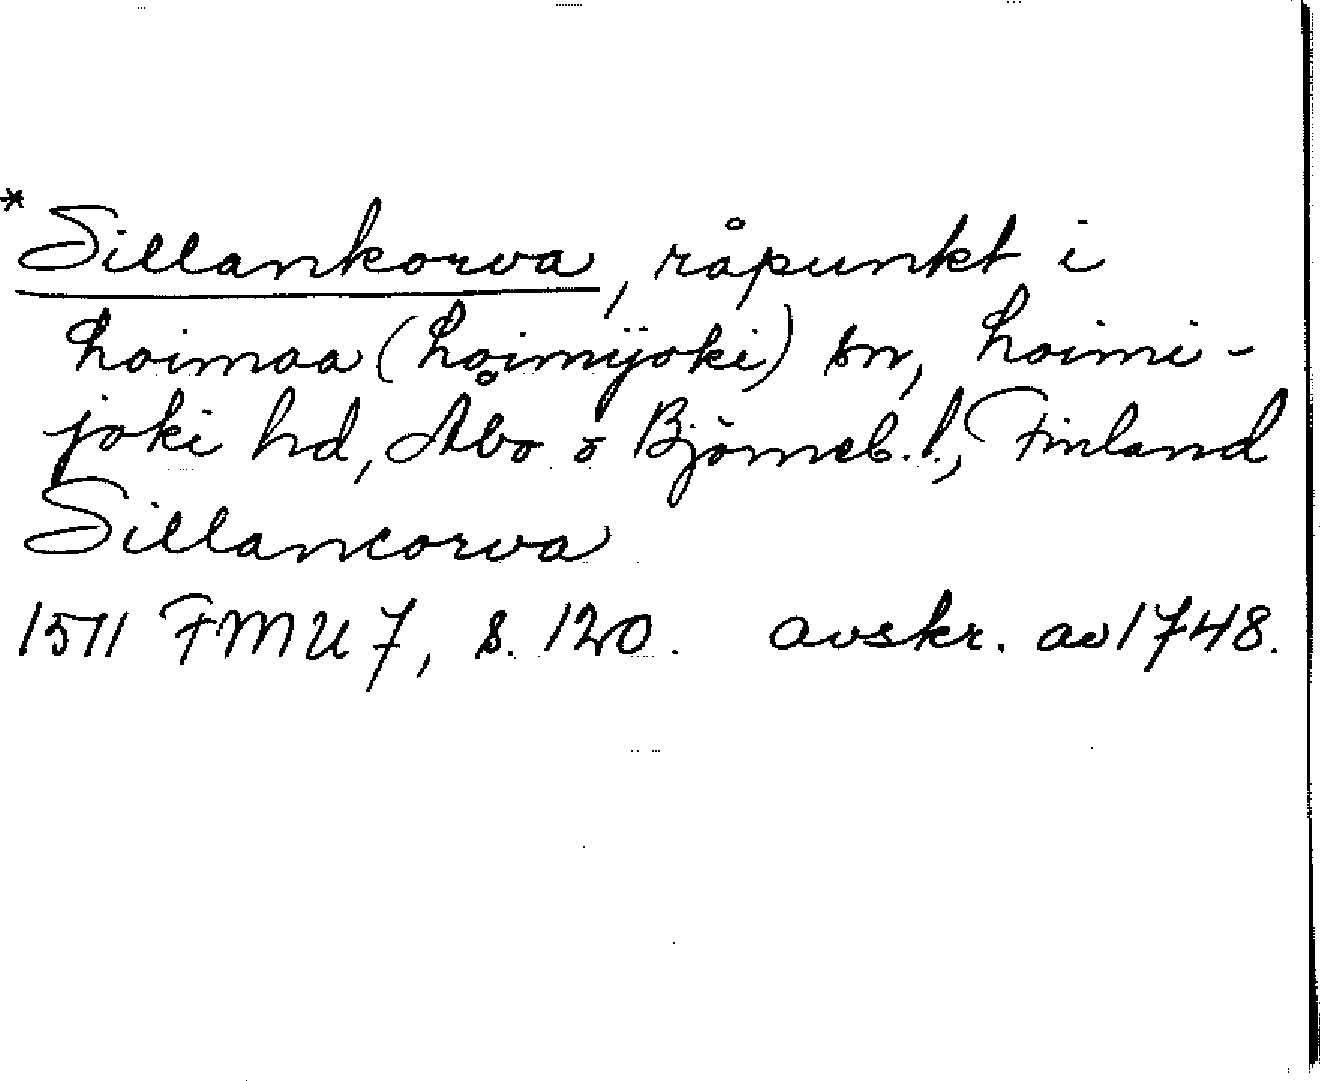 *Sillankorva, råpunkt i
Loimaa (Loimijoki) sn, Loimi-
joki hd, Åbo o Björneb. l., Finland
Sillancorva
1511 FMU 7, s. 120. avskr. av 1748.